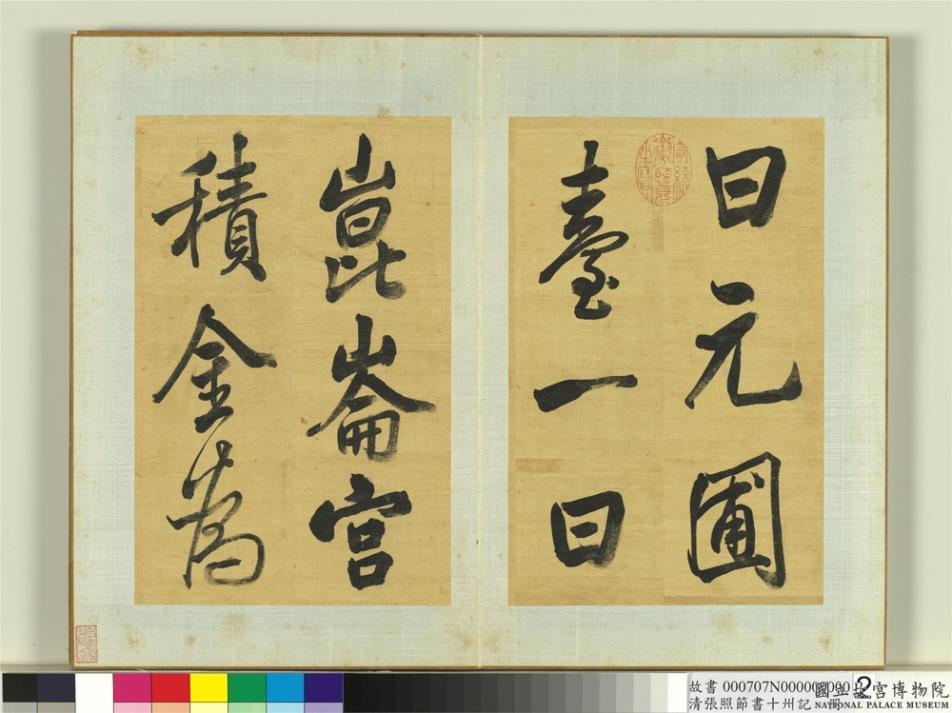 曰元圃
臺一曰
崑崙宮
積金為
故書 000707N000000000 2
清張照節書十州記 冊
國立故宮博物院
NATIONAL PALACE MUSEUM